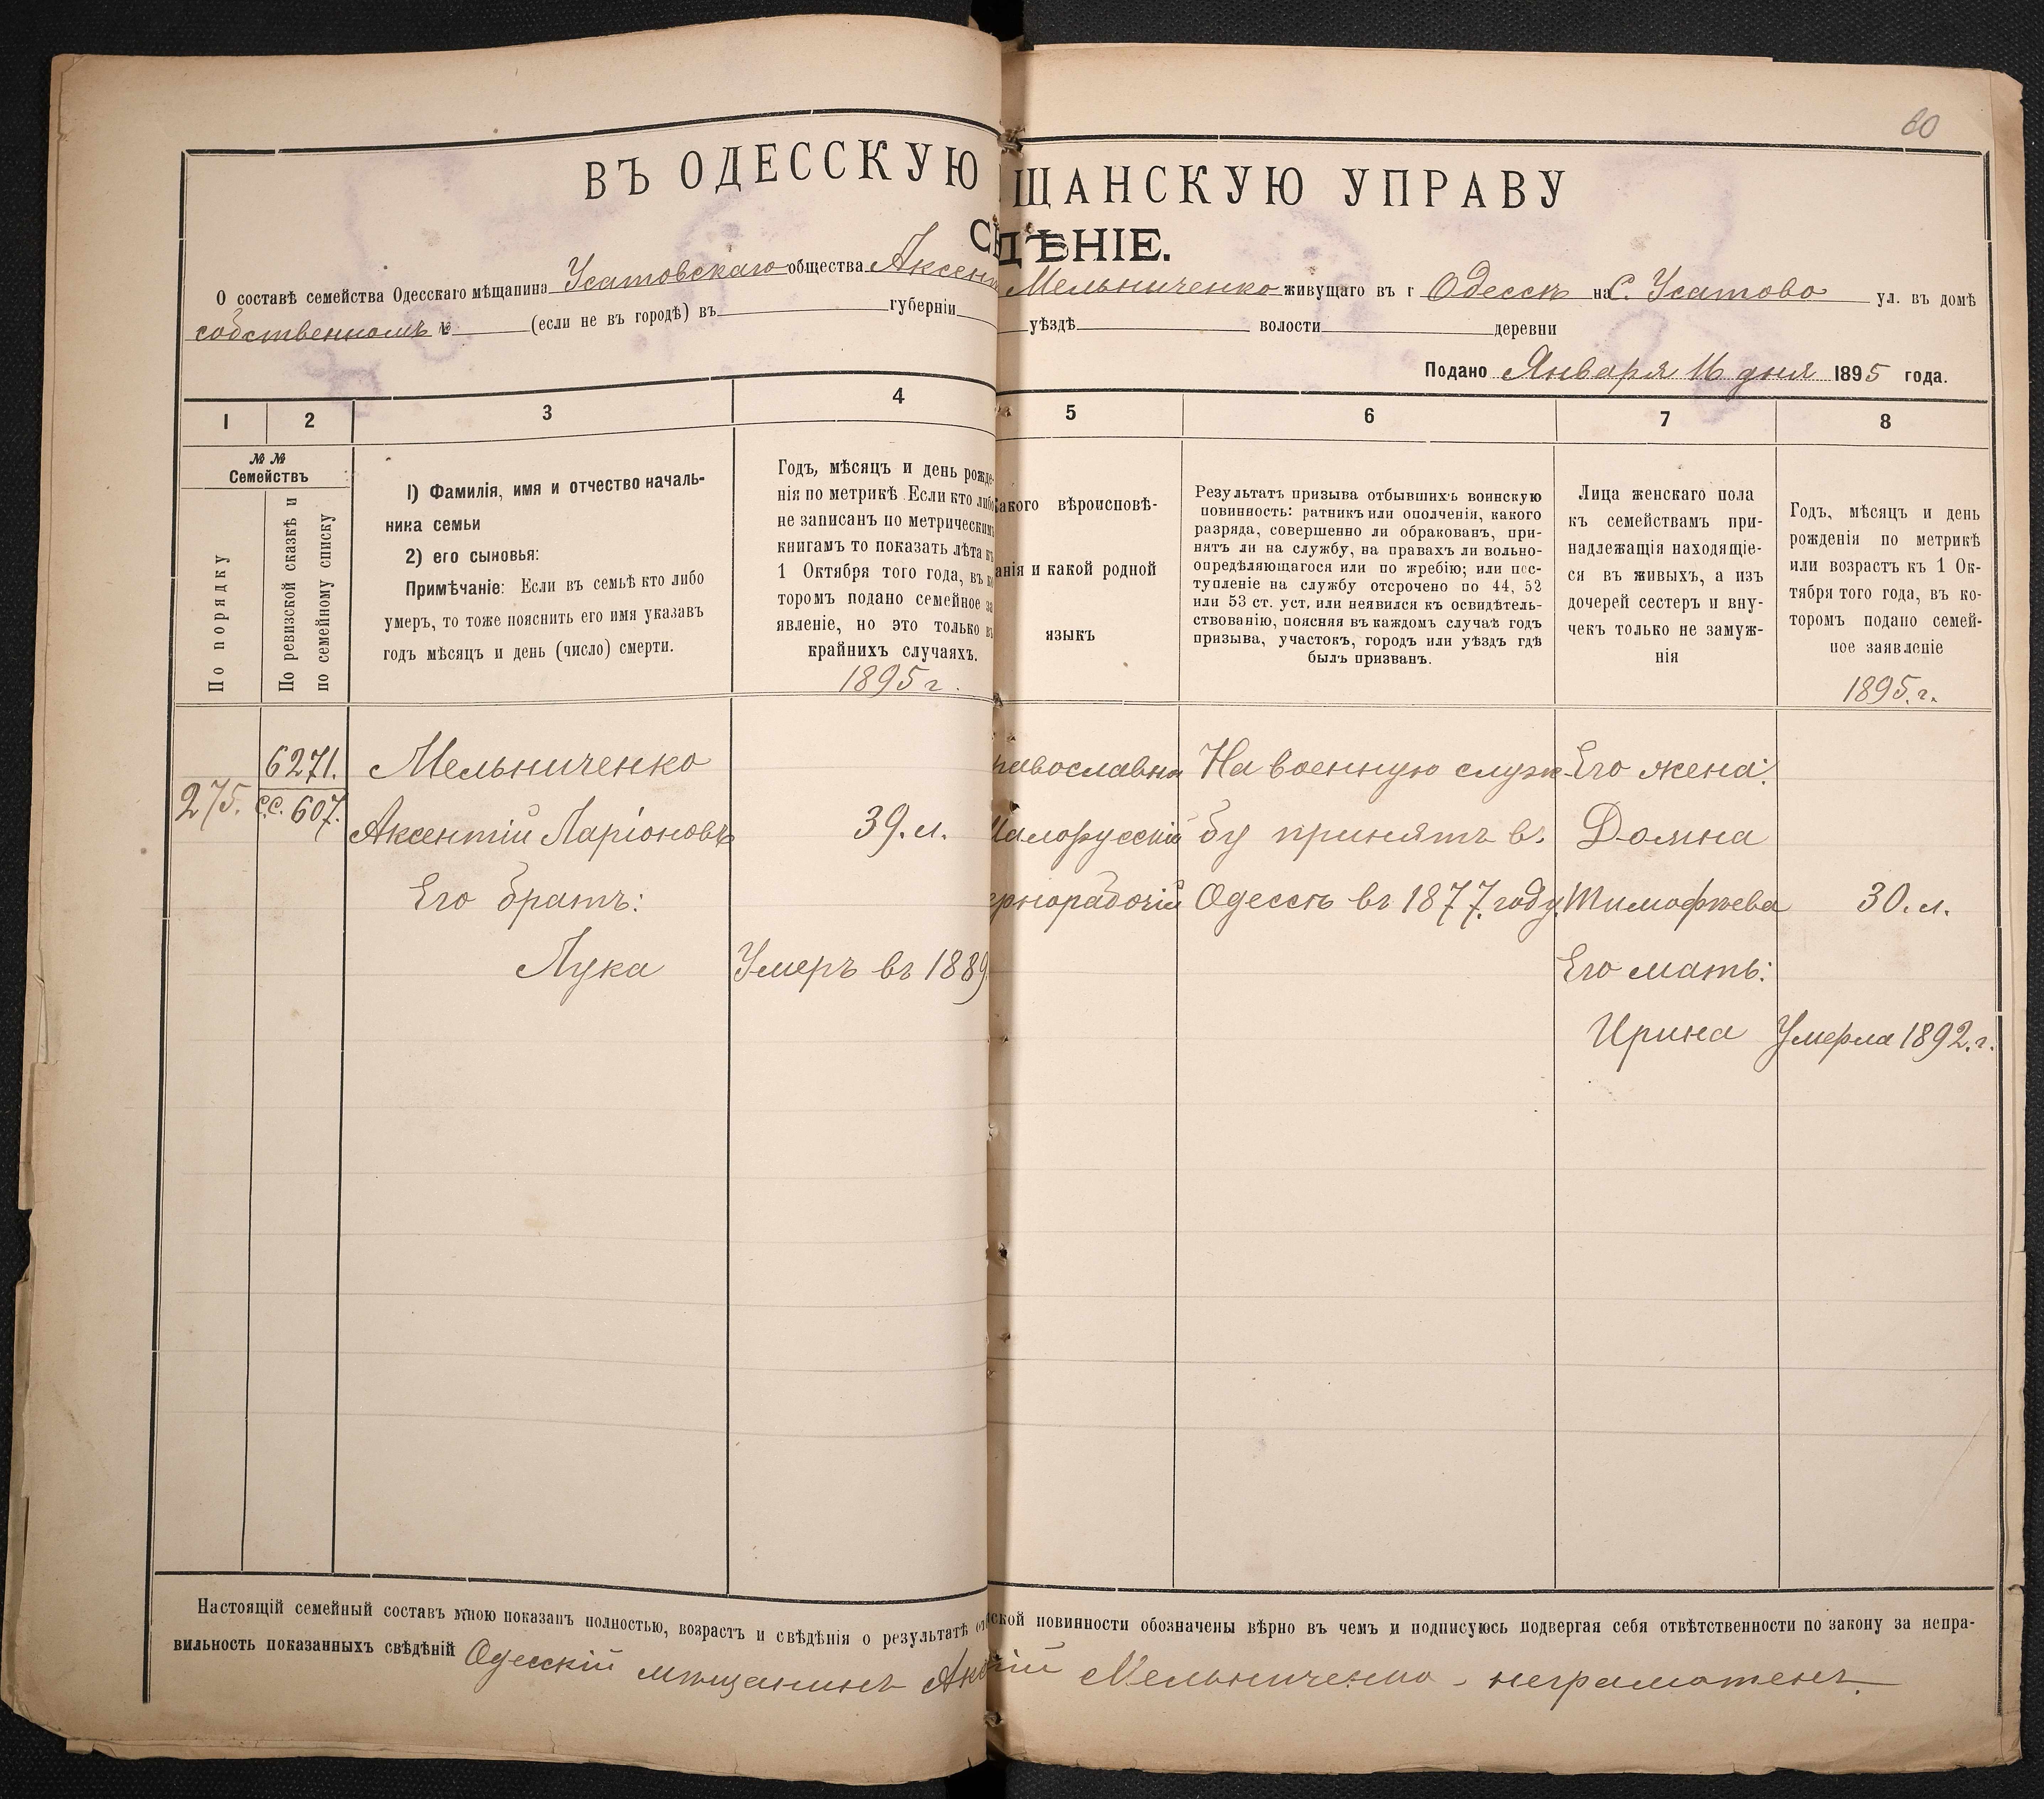 80
ВЪ ОДЕССКУЮ ЩАНСКУЮ УПРАВУ
СВѢДѢНІЕ.
О составѣ семейства Одесскаго мѣщанина Усатовскаго общества Аксент Мельниченко живущаго въ г Одессѣ на С. Усатово ул. въ домѣ
собственномъ № (если не въ городѣ) въ губерніи уѣздѣ волости деревни
Подано Января 16 дня 1895 года.
1 2 3 4 5 6 7 8
№ №
Семействъ
По порядку
По ревизской сказкѣ и
по семейному списку
1) Фамилія, имя и отчество началь-
ника семьи
2) его сыновья:
Примѣчаніе: Если въ семьѣ кто либо
умеръ, то тоже пояснить его имя указавъ
годъ мѣсяцъ и день (число) смерти.
Годъ, мѣсяцъ и день рожде-
нія по метрикѣ. Если кто либо
не записанъ по метрическимъ
книгамъ то показать лѣта къ
1 Октября того года, въ ко
торомъ подано семейное за
явленіе, но это только въ
крайнихъ случаяхъ.
1895 г.
акого вѣроисповѣ-
анія и какой родной
языкъ
Результатъ призыва отбывшихъ воинскую
повинность: ратникъ или ополченія, какого
разряда, совершенно ли обракованъ, при-
нятъ ли на службу, на правахъ ли вольно-
опредѣляющагося или по жребію; или пос-
тупленіе на службу отсрочено по 44, 52
или 53 ст. уст. или неявился къ освидѣтель-
ствованію, поясняя въ каждомъ случаѣ годъ
призыва, участокъ, городъ или уѣздъ гдѣ
былъ призванъ.
Лица женскаго пола
къ семействамъ при-
надлежащія находящіе-
ся въ живыхъ, а изъ
дочерей сестеръ и вну-
чекъ только не замуж-
нія
Годъ, мѣсяцъ и день
рожденія по метрикѣ
или возрастъ къ 1 Ок-
тября того года, въ ко-
торомъ подано семей-
ное заявленіе
1895. г.
6271. Мельниченко равославна На военную служ Его жена:
275. с.с. 607. Аксентій Ларіоновъ 39. л. Малорусскій бу принятъ в. Домна
Его братъ: ернорабочій Одессѣ въ 1877. году. Тимофѣева 30. л.
Лука Умеръ въ 1889 Его мать:
Ирина Умерла 1892. г.
Настоящій семейный составъ мною показанъ полностью, возрастъ и свѣдѣнія о результатѣ от ской повинности обозначены вѣрно въ чемъ и подписуюсь подвергая себя отвѣтственности по закону за непра-
вильность показанныхъ свѣдѣній Одесскій мѣщанинъ Ак тій Мельниченко - неграмотенъ.